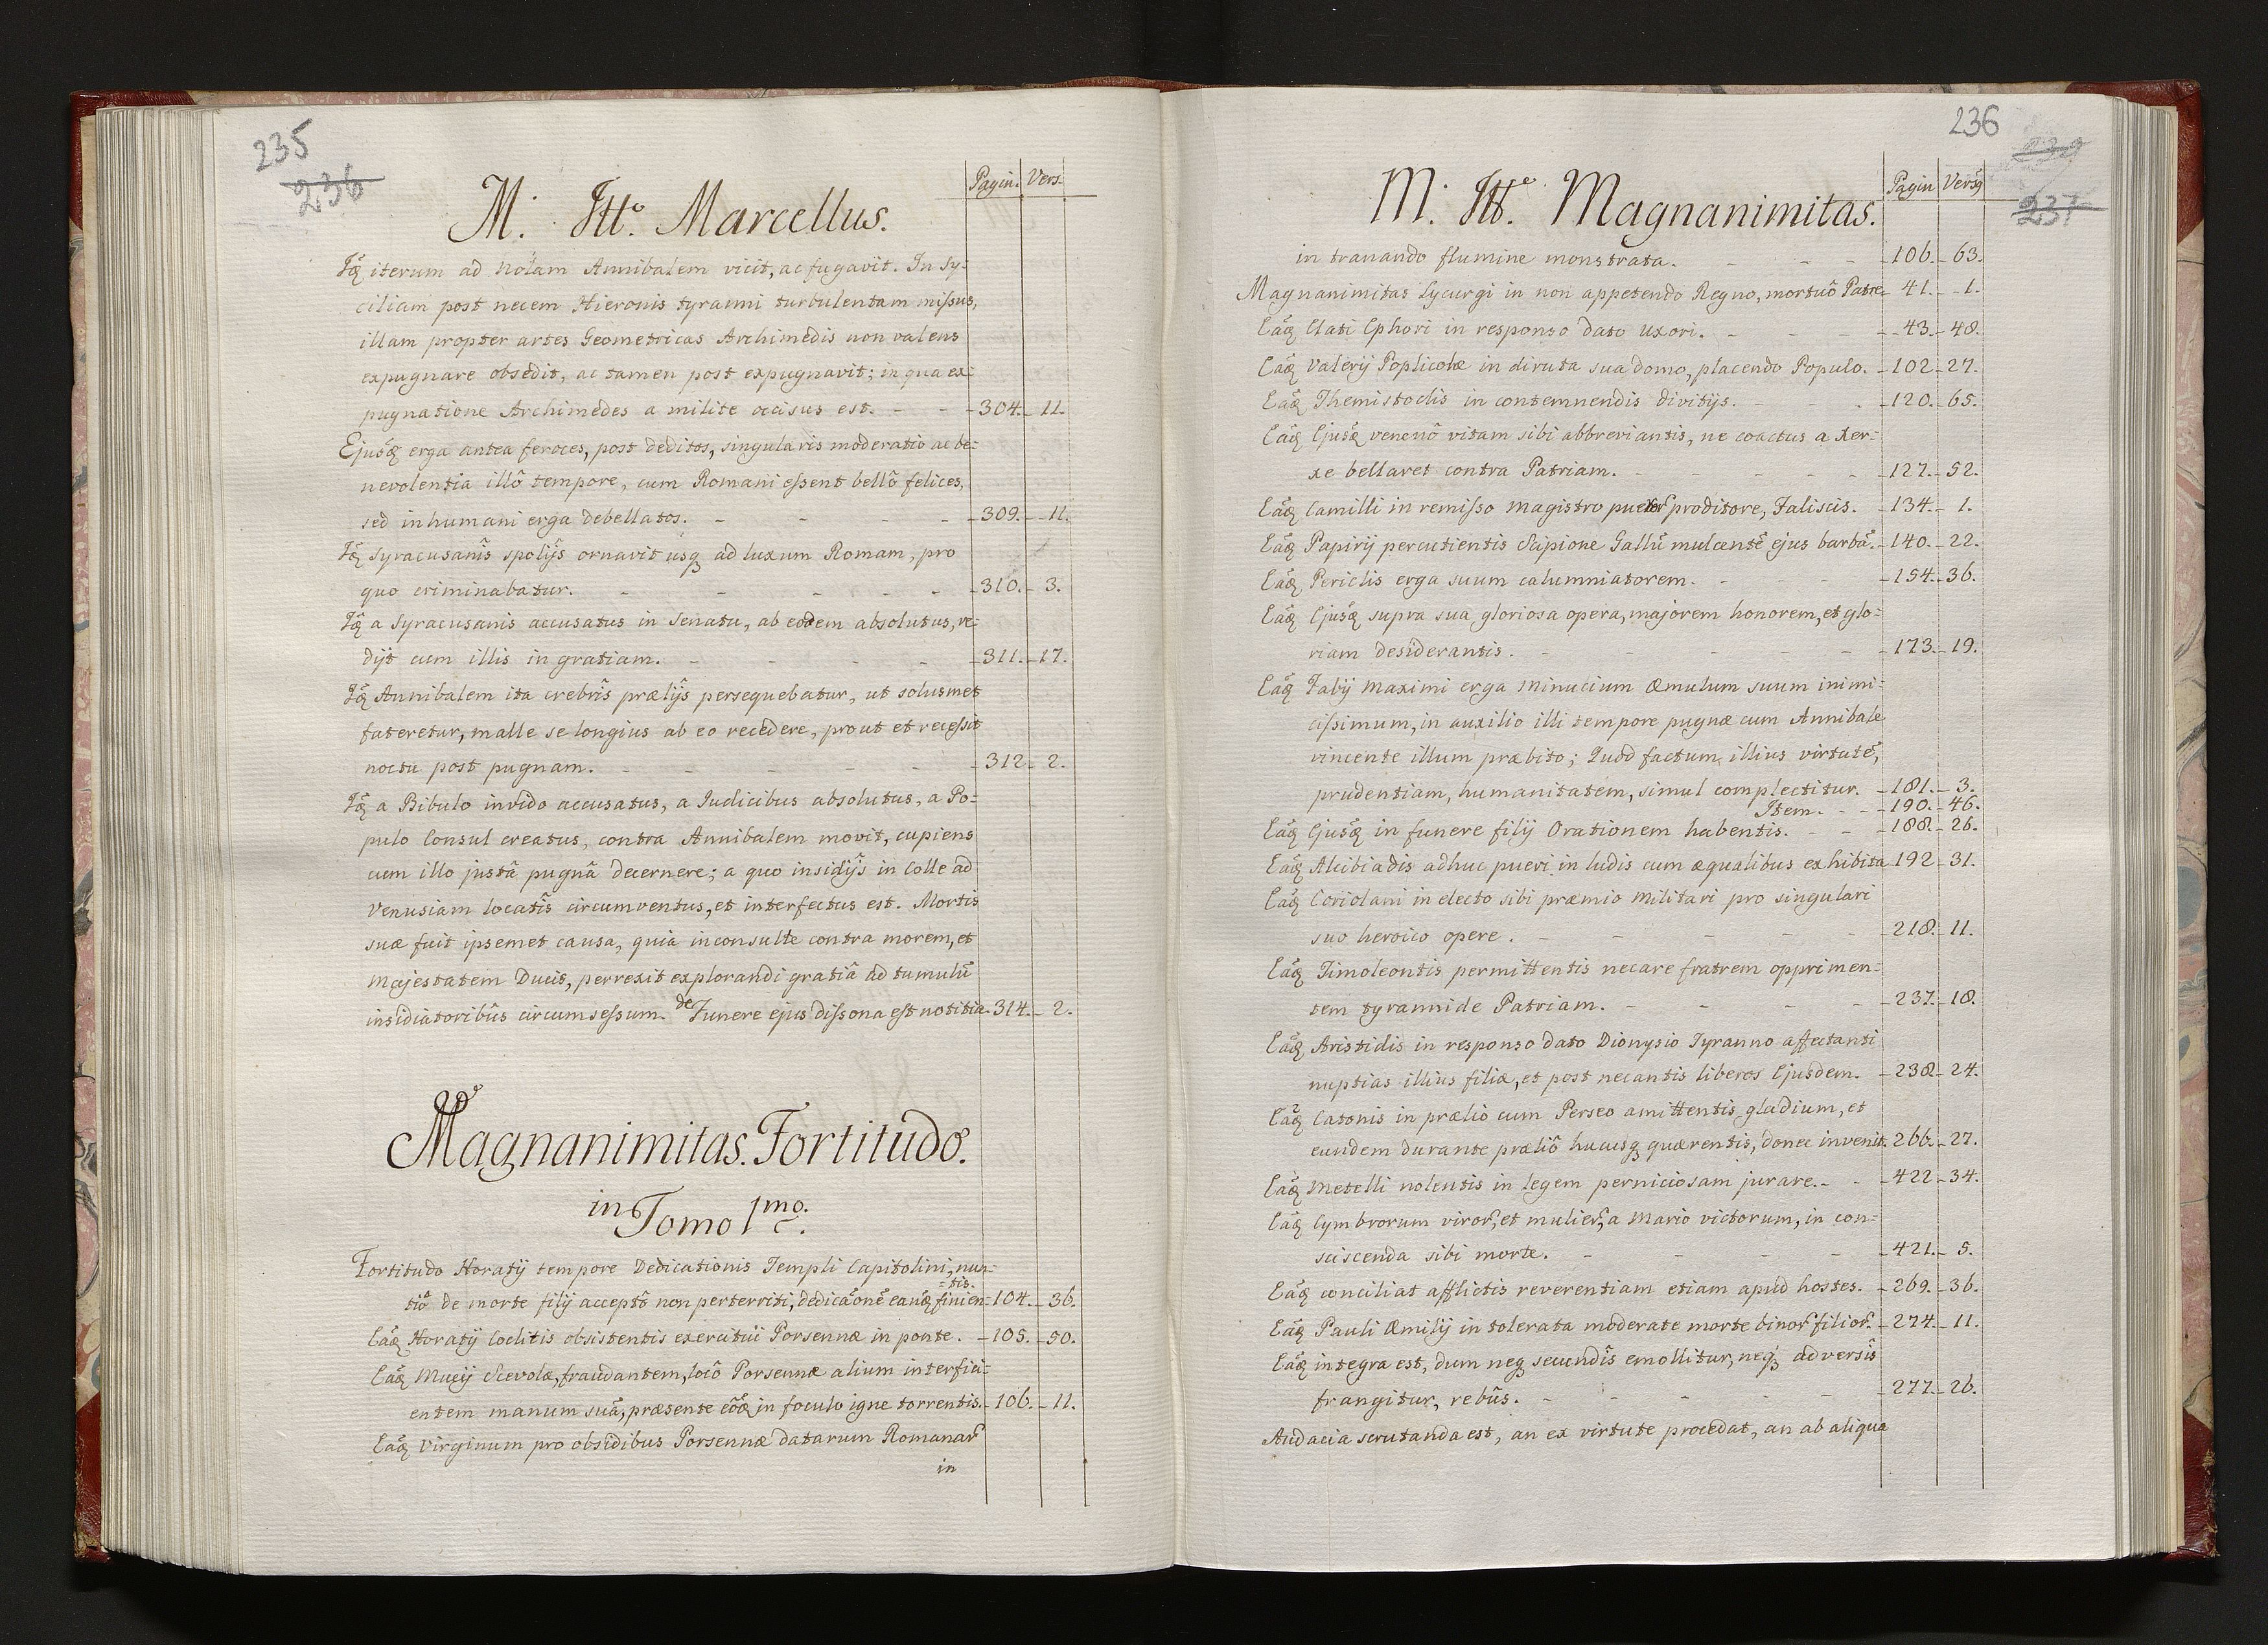 235
236
Pagin. Vers.
M. Ttt.o Marcellus.
Idẽ iterum ad Nolam Annibalem vicit, ac fugavit. In Sy=
ciliam post necem Hieronis tyranni turbulentam missus,
illam propter artes Geometricas Archimedis non valens
expugnare obsedit, ac tamen post expugnavit; in qua ex=
pugnatione Archimedes a milite occisus est. - - -304.- 11.
Ejusdẽ erga antea feroces, post deditos, singularis moderatio ac be=
nevolentia illô tempore, cum Romani essent bellô felices,
sed inhumani erga debellatos. - - - - -309.- -11.
Idẽ Syracusanîs spolijs ornavit usq̃ ad luxum Romam, pro
quo criminabatur. - - - - - -310.- 3.
Idẽ a Syracusanis accusatus in Senatu, ab eodem absolutus, re=
dijt cum illis in gratiam. - - - - -311.-17.
Idẽ Annibalem ita crebrîs prælijs persequebatur, ut solusmet
fateretur, malle se longius ab eo recedere, prout et recessit
noctu post pugnam. - - - - - -312.- 2.
Idẽ a Bibulo invido accusatus, a Iudicibus absolutus, a Po=
pulo Consul creatus, contra Annibalem movit, cupiens
cum illo justâ pugnâ decernere; a quo insidijs in Colle ad
Venusiam locatîs circumventus, et interfectus est. Mortis
suæ fuit ipsemet causa, quia inconsulte contra morem, et
Majestatem Ducis, perrexit explorandi gratiâ ad tumulũ
insidiatoribûs circumsessum. de Funere ejus dissona est notitia-314.- 2.
Magnanimitas. Fortitudo.
in Tomo 1mo.
Fortitudo Horatij tempore Dedicationis Templi Capitolini, nun=
=tis.
tiô de morte filij acceptô non perterriti, dedicãonẽ eandẽ finien=104.- 36.
Eadẽ Horatij Coclitis obsistentis exercitui Porsennæ in ponte. -105.-50.
Eadẽ Mucij Scevolæ, fraudantem, locô Porsennæ alium interfici=
entem manum suã, præsente eodẽ in foculo igne torrentis.-106.- 11.
Eadẽ Virginum pro obsidibus Porsennæ datarum Romanar̃
in
236
239
237
Pagin Versq
M. Ttt.o Magnanimitas.
in tranando flumine monstrata. - - - -106.- 63.
Magnanimitas Lycurgi in non appetendo Regno, mortuô Patre- 41.- -1.
Eadẽ Elati Ephori in responso dato Uxori. - - - - -43.- 48.
Eadẽ Valerij Poplicolæ in diruta sua domo, placendo Populo. -102.-27.
Eadẽ Themistoclis in contemnendis divitijs. - - - -120.- 65.
Eadẽ Ejusdẽ venenô vitam sibi abbreviantis, ne coactus a Xer=
xe bellaret contra Patriam. - - - - -127.- 52.
Eadẽ Camilli in remisso Magistro pueror̃ proditore, Faliscis. -134.- 1.
Eadẽ Papirij percutientis Scipione Gallũ mulcentẽ ejus barbã.-140.- 22.
Eadẽ Periclis erga suum calumniatorem. - - - -154.-36.
Eadẽ Ejusdẽ supra sua gloriosa opera, majorem honorem, et glo=
riam desiderantis. - - - - - -173.- 19.
Eadẽ Fabij Maximi erga Minucium Æmulum suum inimi=
cissimum, in auxilio illi tempore pugnæ cum Annibale
vincente illum præbito; Quod factum, illius virtutẽ,
prudentiam, humanitatem, simul complectitur. -181.- 3.
Item. - -190.- 46.
Eadẽ Ejusdẽ in funere filij Orationem habentis. - - -188.- 26.
Eadẽ Alcibiadis adhuc pueri in ludis cum æqualibus exhibita 192.- 31.
Eadẽ Coriolani in electo sibi præmio Militari pro singulari
suo heroico opere. - - - - - -218.- 11.
Eadẽ Timoleontis permittentis necare fratrem opprimen=
tem tyrannide Patriam. - - - - -237.- 18.
Eadẽ Aristidis in responso dato Dionysio Tyranno affectanti
nuptias illius filiæ, et post necantis liberos Ejusdem. -238.- 24.
Eadẽ Catonis in prælio cum Perseo amittentis gladium, et
eundem durante præliô hucusq̃ quærentis, donec invenit.266.-27.
Eadẽ Metelli nolentis in legem perniciosam jurare.- - -422.-34.
Eadẽ Cymbrorum viror̃, et mulier̃, a Mario victorum, in con=
sciscenda sibi morte. - - - - -421.- 5.
Eadẽ conciliat afflictis reverentiam etiam apud hostes. -269.-36.
Eadẽ Pauli Æmilij in tolerata moderate morte binor̃ filior̃.-274.- 11.
Eadẽ integra est, dum neq̃ secundîs emollitur, neq̃ adversîs
frangitur, rebûs. - - - - -277.- 26.
Audacia scrutanda est, an ex virtute procedat, an ab aliqua